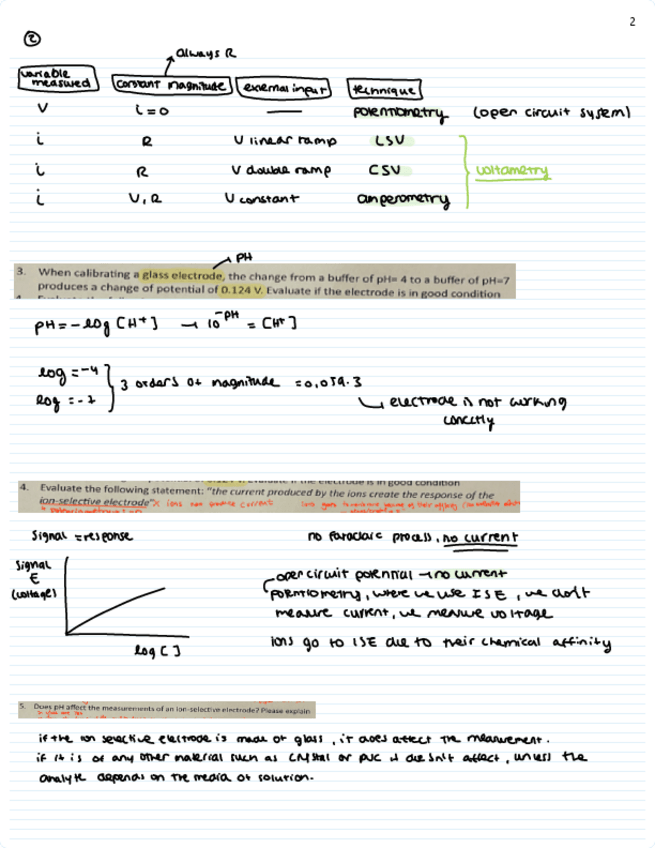 2
②
always R
variable measured constant magnitude external input technique
V i=0 — potentiometry (open circuit system)
i R V linear ramp LSV
i R V double ramp CSV voltametry
i V, R V constant amperometry
pH
3. When calibrating a glass electrode, the change from a buffer of pH= 4 to a buffer of pH=7
produces a change of potential of 0.124 V. Evaluate if the electrode is in good condition
pH = -log [H+] → 10^-pH = [H+]
log = -4
log = -7
3 orders of magnitude = 0,059.3
electrode is not working
correctly
4. Evaluate the following statement: "the current produced by the ions create the response of the
ion-selective electrode" x ions non produce current
Signal = response no faradaic process, no current
Signal
E
(voltage)
log [ ]
open circuit potential → no current
potentiometry, where we use ISE, we don't
measure current, we measure voltage
ions go to ISE due to their chemical affinity
5. Does pH affect the measurements of an ion-selective electrode? Please explain
if the ion selective electrode is made of glass, it does affect the measurement.
if it is of any other material such as crystal or PVC it doesn't affect, unless the
analyte depends on the media of solution.